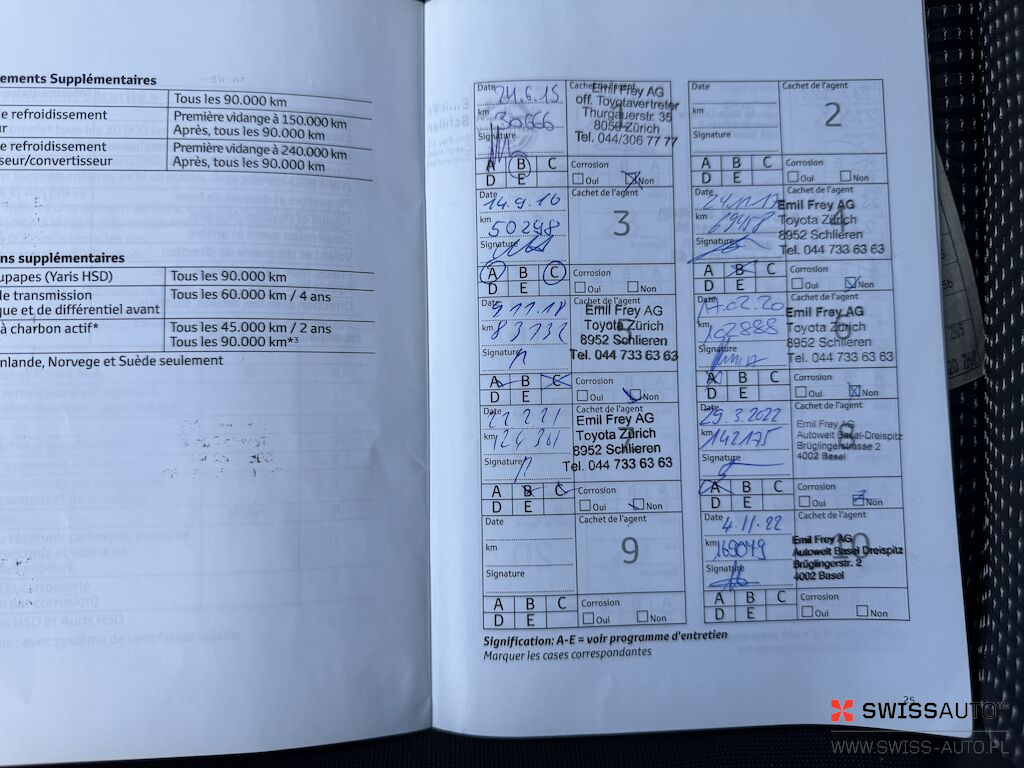 ements Supplémentaires
Tous les 90.000 km
e refroidissement
ur
Première vidange à 150.000 km
Après, tous les 90.000 km
e refroidissement
seur/convertisseur
Première vidange à 240.000 km
Après, tous les 90.000 km
ns supplémentaires
upapes (Yaris HSD)
Tous les 90.000 km
de transmission
que et de différentiel avant
Tous les 60.000 km / 4 ans
à charbon actif*
Tous les 45.000 km / 2 ans
Tous les 90.000 km*³
inlande, Norvege et Suède seulement
Date 24.6.15
km 30666
Signature
Cachet de l'agent
Emil Frey AG
off. Toyotavertreter
Thurgauerstr. 35
8050 Zürich
Tel. 044/306 77 77
A B C
D E
Corrosion
Oui Non
Date
km
Signature
Cachet de l'agent
2
A B C
D E
Corrosion
Oui Non
Date 14.9.16
km 50298
Signature
Cachet de l'agent
3
A B C
D E
Corrosion
Oui Non
Date 24.11.17
km 69458
Signature
Cachet de l'agent
4
Emil Frey AG
Toyota Zürich
8952 Schlieren
Tel. 044 733 63 63
A B C
D E
Corrosion
Oui Non
Date 9.11.18
km 83132
Signature
Cachet de l'agent
5
Emil Frey AG
Toyota Zürich
8952 Schlieren
Tel. 044 733 63 63
A B C
D E
Corrosion
Oui Non
Date 17.02.20
km 102888
Signature
Cachet de l'agent
6
Emil Frey AG
Toyota Zürich
8952 Schlieren
Tel. 044 733 63 63
A B C
D E
Corrosion
Oui Non
Date 22 2 21
km 124361
Signature
Cachet de l'agent
7
Emil Frey AG
Toyota Zürich
8952 Schlieren
Tel. 044 733 63 63
A B C
D E
Corrosion
Oui Non
Date 29.3.2022
km 142175
Signature
Cachet de l'agent
8
Emil Frey AG
Autowelt Basel-Dreispitz
Brüglingerstrasse 2
4002 Basel
A B C
D E
Corrosion
Oui Non
Date
km
Signature
Cachet de l'agent
9
A B C
D E
Corrosion
Oui Non
Date 4.11.22
km 169049
Signature
Cachet de l'agent
10
Emil Frey AG
Autowelt Basel Dreispitz
Brüglingerstr. 2
4002 Basel
A B C
D E
Corrosion
Oui Non
Signification: A-E = voir programme d'entretien
Marquer les cases correspondantes
25
SWISSAUTO
WWW.SWISS-AUTO.PL